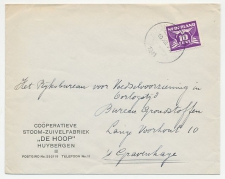 NEDERLAND
10
Het Rijksbureau voor Voedselvoorziening in
Oorlogstijd
Bureau Grondstoffen
Lang Voorhout 10
's Gravenhage
COÖPERATIEVE
STOOM-ZUIVELFABRIEK
„DE HOOP"
HUYBERGEN